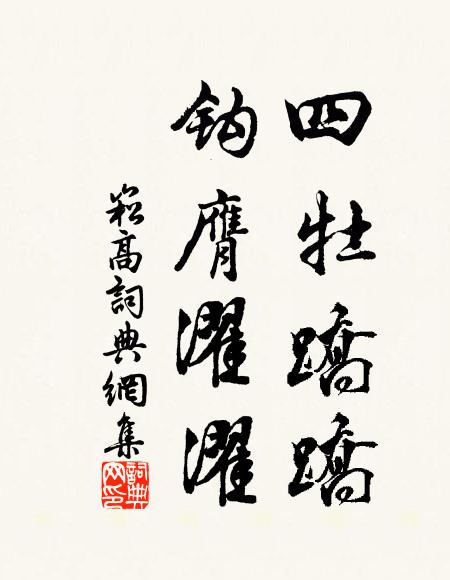 四牡蹻蹻
鈎膺濯濯
崧高詞典網集
詞典
网印